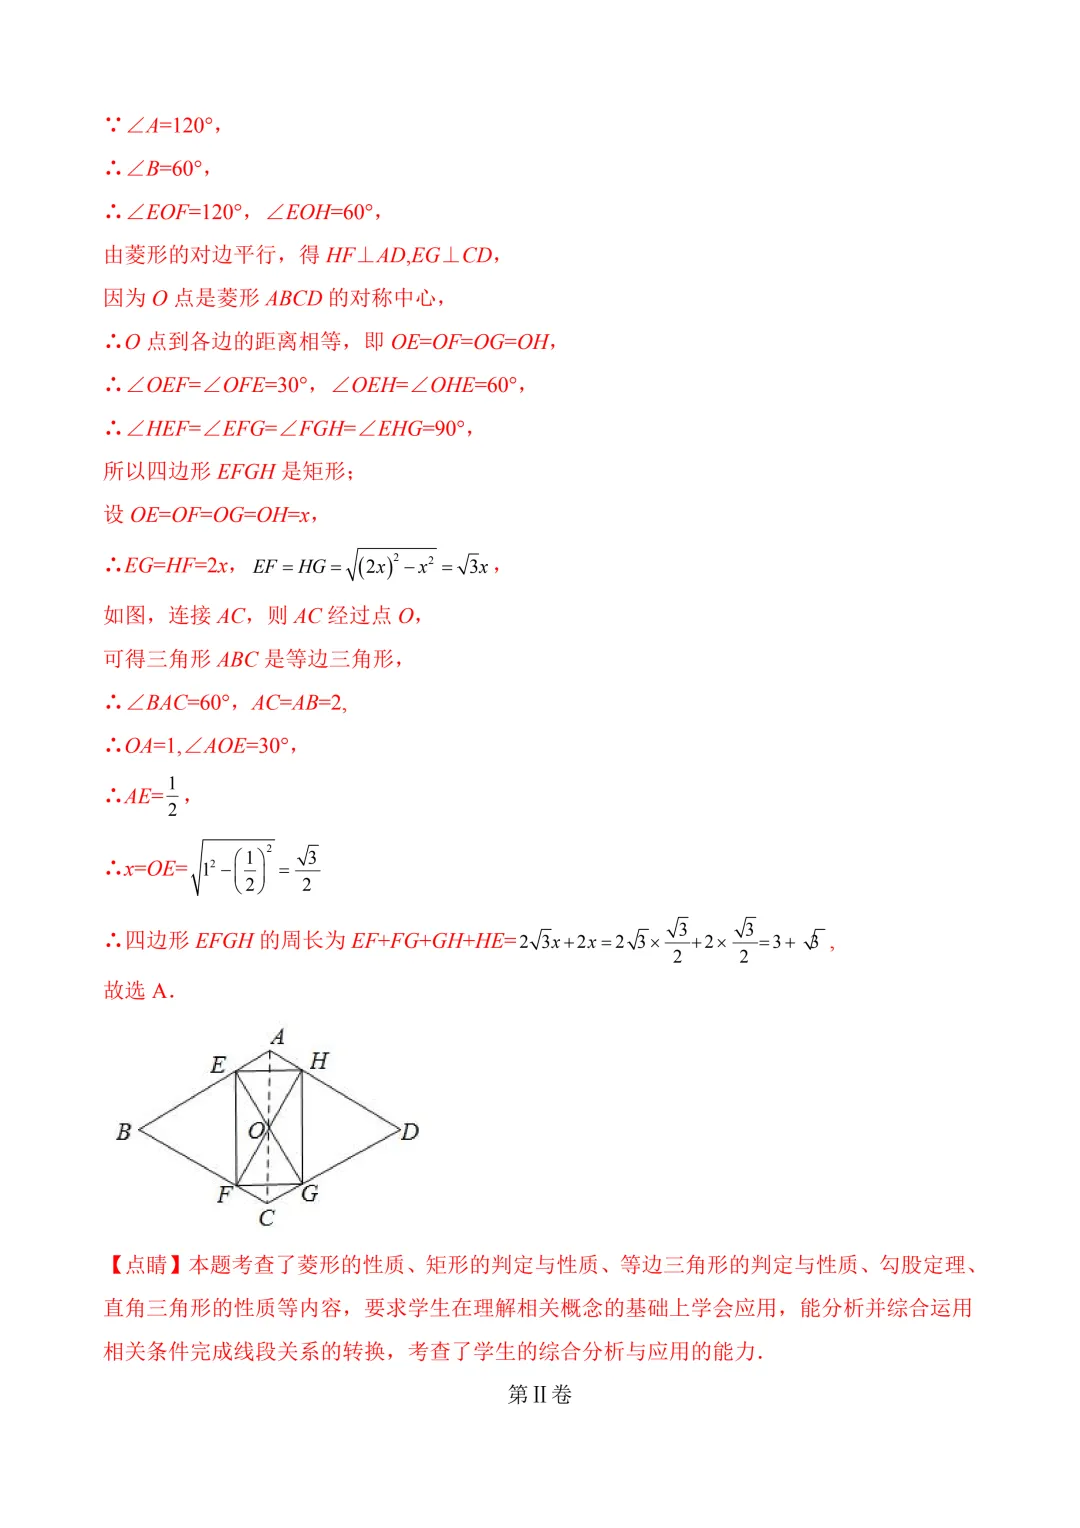 ∵∠A=120°，
∴∠B=60°，
∴∠EOF=120°，∠EOH=60°，
由菱形的对边平行，得 HF⊥AD,EG⊥CD，
因为 O 点是菱形 ABCD 的对称中心，
∴O 点到各边的距离相等，即 OE=OF=OG=OH，
∴∠OEF=∠OFE=30°，∠OEH=∠OHE=60°，
∴∠HEF=∠EFG=∠FGH=∠EHG=90°，
所以四边形 EFGH 是矩形；
设 OE=OF=OG=OH=x，
∴EG=HF=2x，EF=HG=√((2x)²−x²)=√3x，
如图，连接 AC，则 AC 经过点 O，
可得三角形 ABC 是等边三角形，
∴∠BAC=60°，AC=AB=2,
∴OA=1,∠AOE=30°，
∴AE=1/2，
∴x=OE=√(1²−(1/2)²)=√3/2
∴四边形 EFGH 的周长为 EF+FG+GH+HE=2√3x+2x=2√3×√3/2+2×√3/2=3+√3，
故选 A．
A
E H
B O D
F G
C
【点睛】本题考查了菱形的性质、矩形的判定与性质、等边三角形的判定与性质、勾股定理、
直角三角形的性质等内容，要求学生在理解相关概念的基础上学会应用，能分析并综合运用
相关条件完成线段关系的转换，考查了学生的综合分析与应用的能力．
第 II 卷